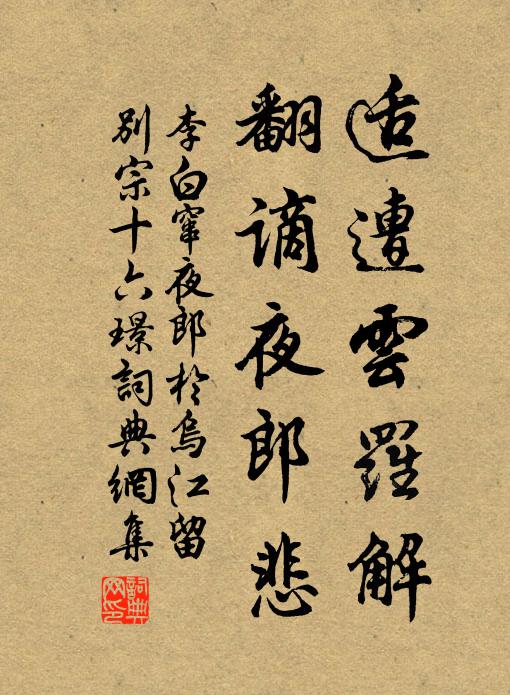 适遭雲羅解
翻謫夜郎悲
李白竄夜郎於烏江留
別宗十六璟詞典網集